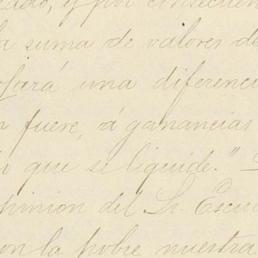 y por consecuen
la suma de valores de
una diferenci
fuere, á ganancias
que se liquide."
opinion del Sr. Escu
con la pobre nuestra